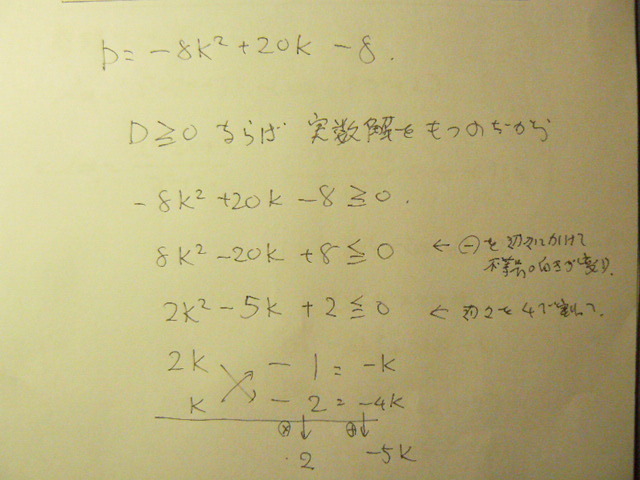 D = -8k² + 20k - 8.
D ≧ 0 ならば 実数解をもつのだから
-8k² + 20k - 8 ≧ 0.
8k² - 20k + 8 ≦ 0 ← ⊖を 辺々にかけて
不等号の向きが変わり.
2k² - 5k + 2 ≦ 0 ← 辺々を4で割って.
2k - 1 = -k
k - 2 = -4k
⊗↓ ⊕↓
2 -5k